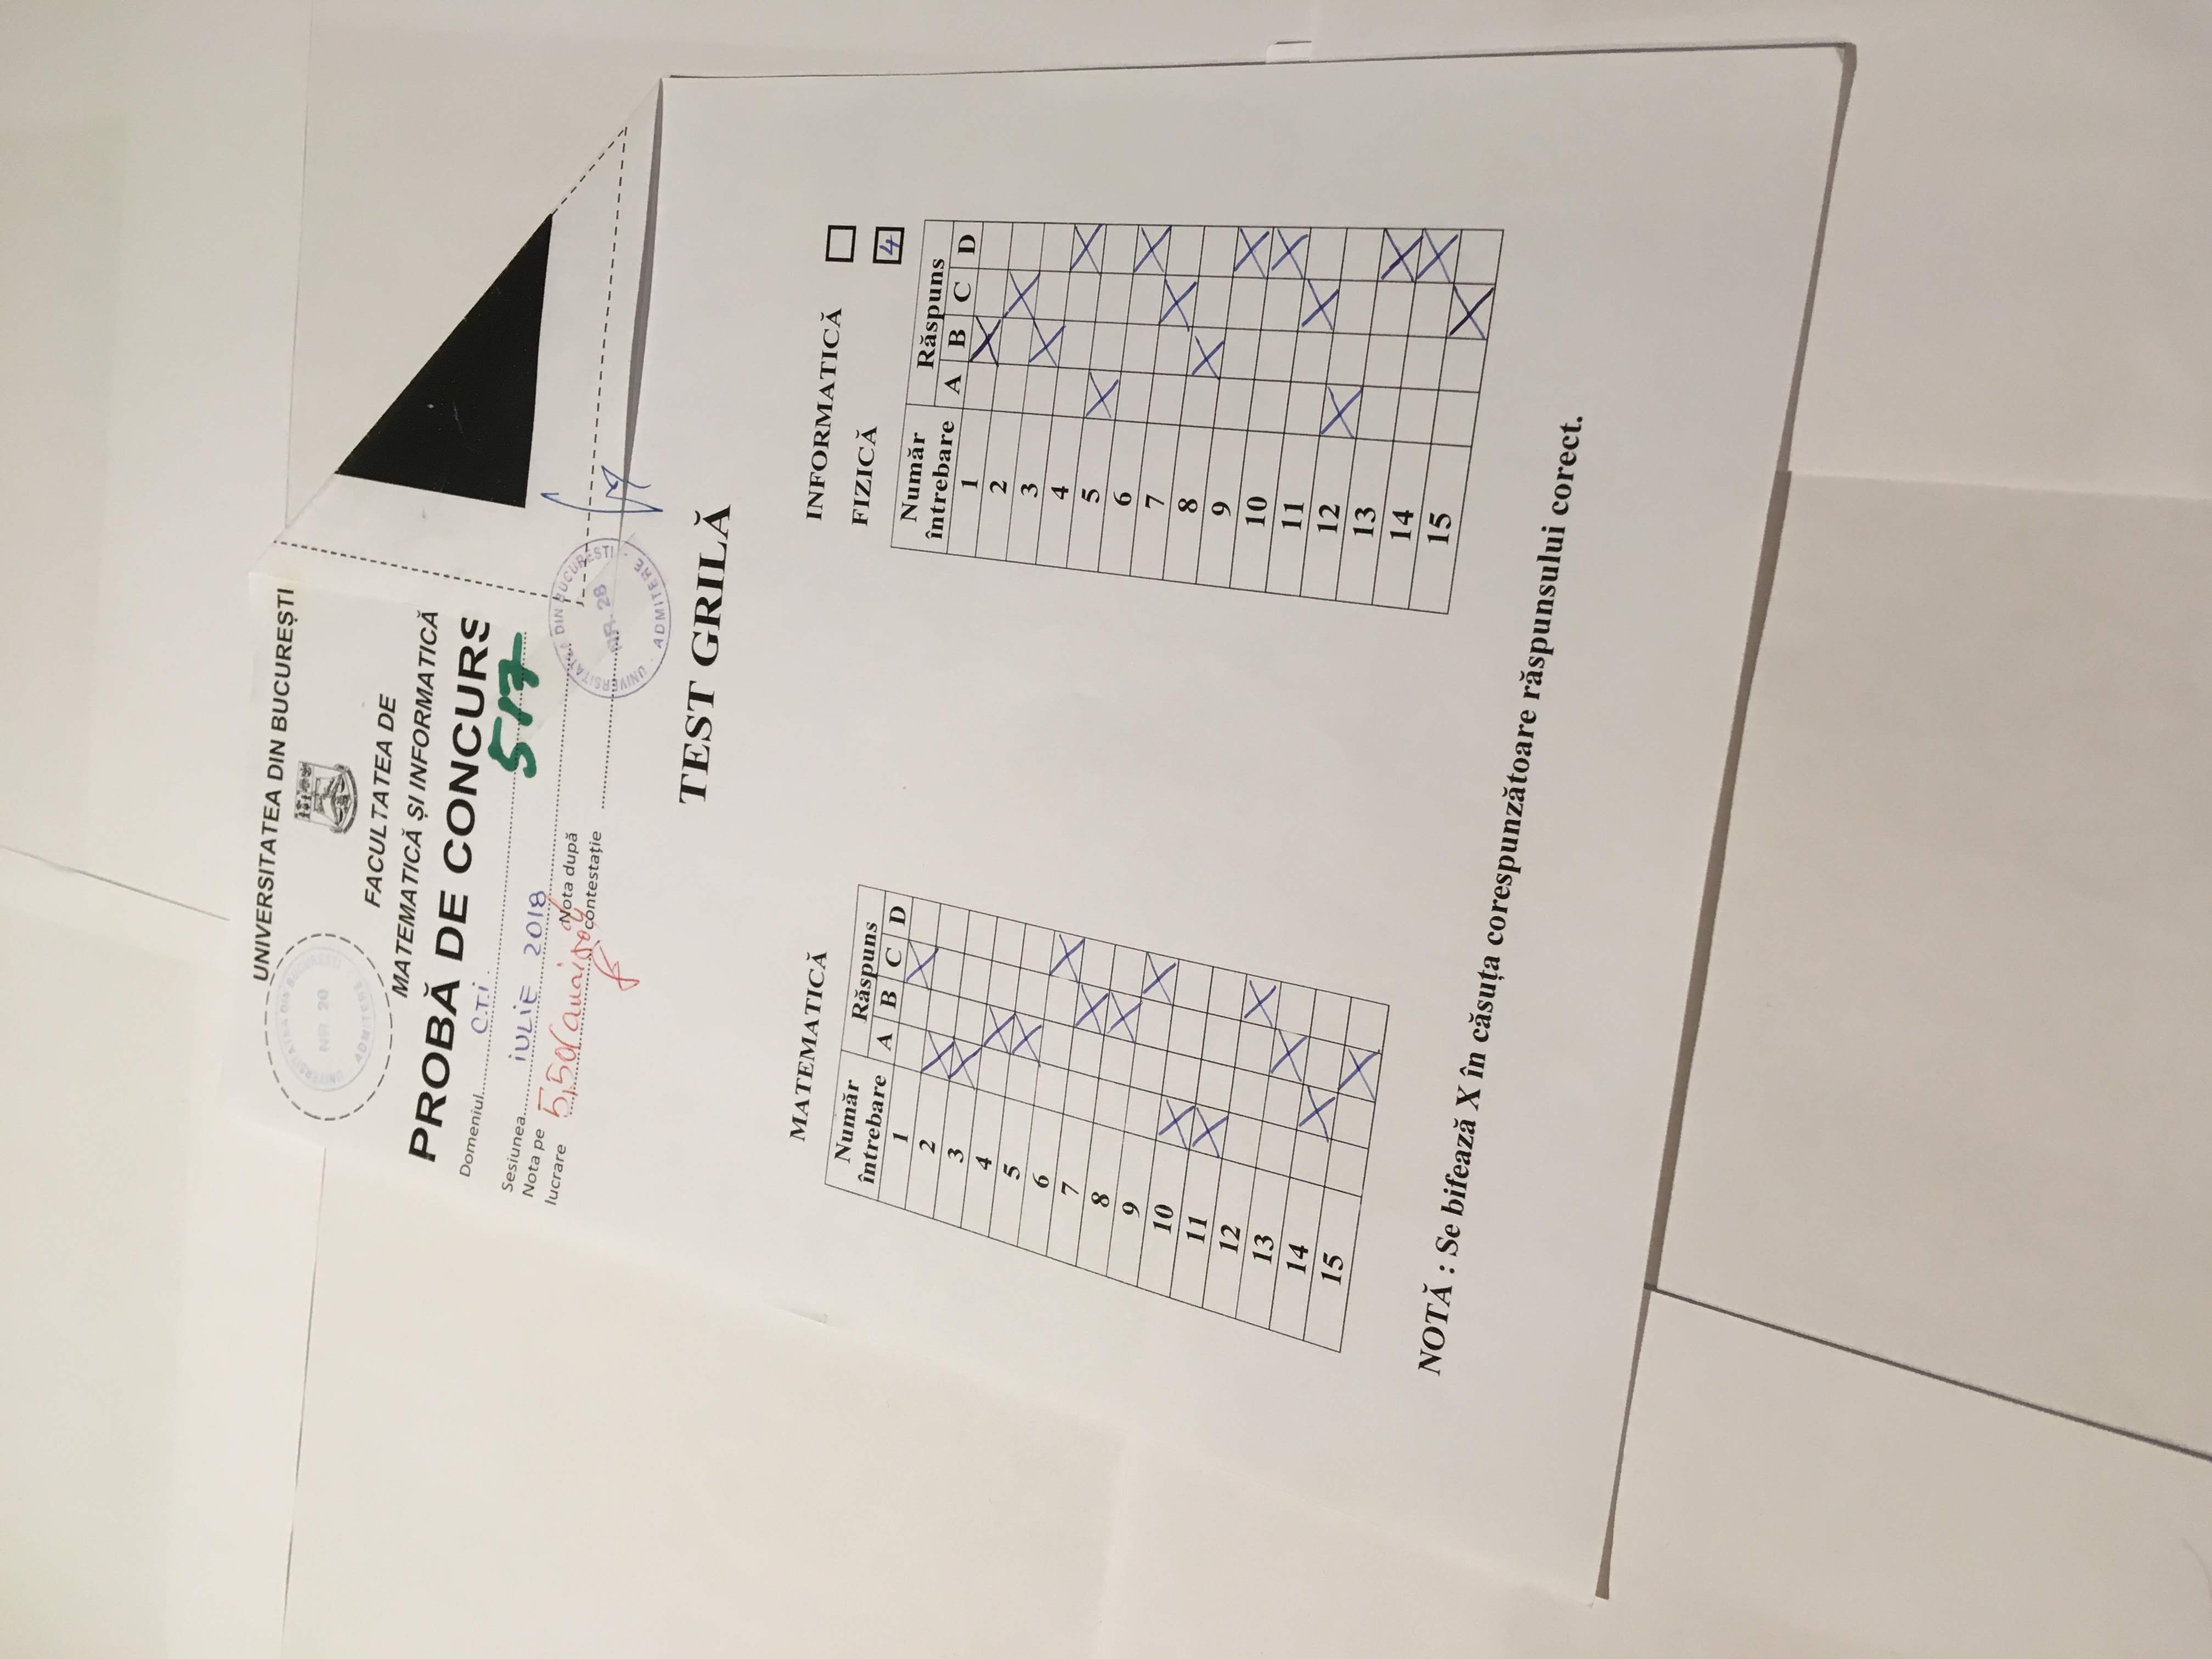 UNIVERSITATEA DIN BUCUREȘTI
UNIVERSITATEA DIN BUCUREȘTI
NR. 20
ADMITERE
FACULTATEA DE
MATEMATICĂ ȘI INFORMATICĂ
PROBĂ DE CONCURS
Domeniul........ C.T.I.
517
Sesiunea........ IULIE 2018
Nota pe lucrare 5,50 (
Nota după contestație
UNIVERSITATEA DIN BUCUREȘTI
NR. 28
ADMITERE
TEST GRILĂ
MATEMATICĂ
Număr întrebare Răspuns
A B C D
1 X
2 X
3 X
4 X
5 X
6 X
7 X
8 X
9 X
10 X
11 X
12 X
13 X
14 X
15 X
INFORMATICĂ
FIZICĂ 4
Număr întrebare Răspuns
A B C D
1 X
2 X
3 X
4 X
5 X
6 X
7 X
8 X
9 X
10 X
11 X
12 X
13 X
14 X
15 X
NOTĂ : Se bifează X în căsuța corespunzătoare răspunsului corect.